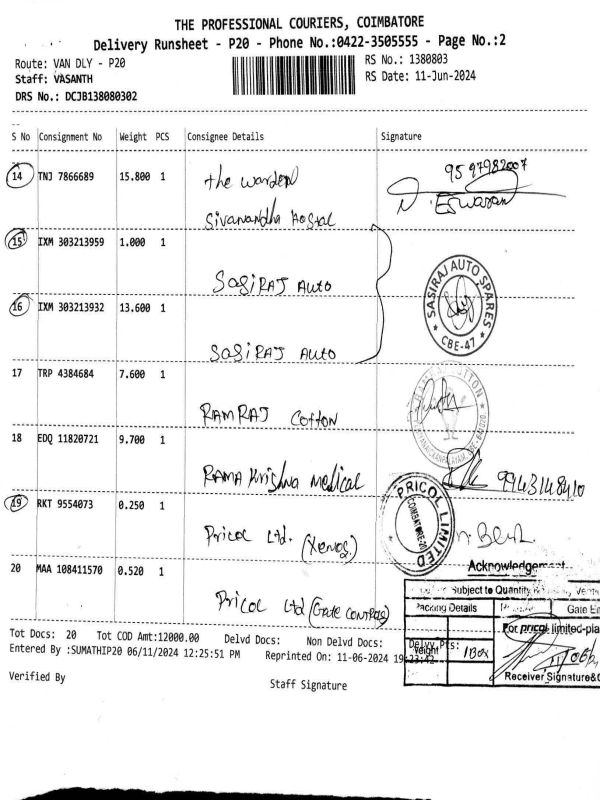 THE PROFESSIONAL COURIERS, COIMBATORE
Delivery Runsheet - P20 - Phone No.:0422-3505555 - Page No.:2
Route: VAN DLY - P20
RS No.: 1380803
Staff: VASANTH
RS Date: 11-Jun-2024
DRS No.: DCJB138080302
S No Consignment No Weight PCS Consignee Details Signature
14 TNJ 7866689 15.800 1 the warden
Sivanandha Hostal
9597982007
N. Eswaran
15 IXM 303213959 1.000 1
SASIRAJ Auto
16 IXM 303213932 13.600 1
SASIRAJ Auto
SASIRAJ AUTO SPARES
CBE-47
17 TRP 4384684 7.600 1
RAMRAJ Cotton
18 EDQ 11820721 9.700 1
RAMA Krishna medical
9943148410
19 RKT 9554073 0.250 1
Pricol Ltd. (Xenos)
PRICOL LIMITED
COIMBATORE-20
Acknowledgement
20 MAA 108411570 0.520 1
Pricol Ltd (Gate Controls)
Subject to Quantity
Packing Details
Gate En
For pricol limited-pla
Weight 1 Box
Receiver Signature&
Tot Docs: 20 Tot COD Amt:12000.00 Delvd Docs: Non Delvd Docs: Delvy Pts:
Entered By :SUMATHIP20 06/11/2024 12:25:51 PM Reprinted On: 11-06-2024 19:23:42
Verified By
Staff Signature